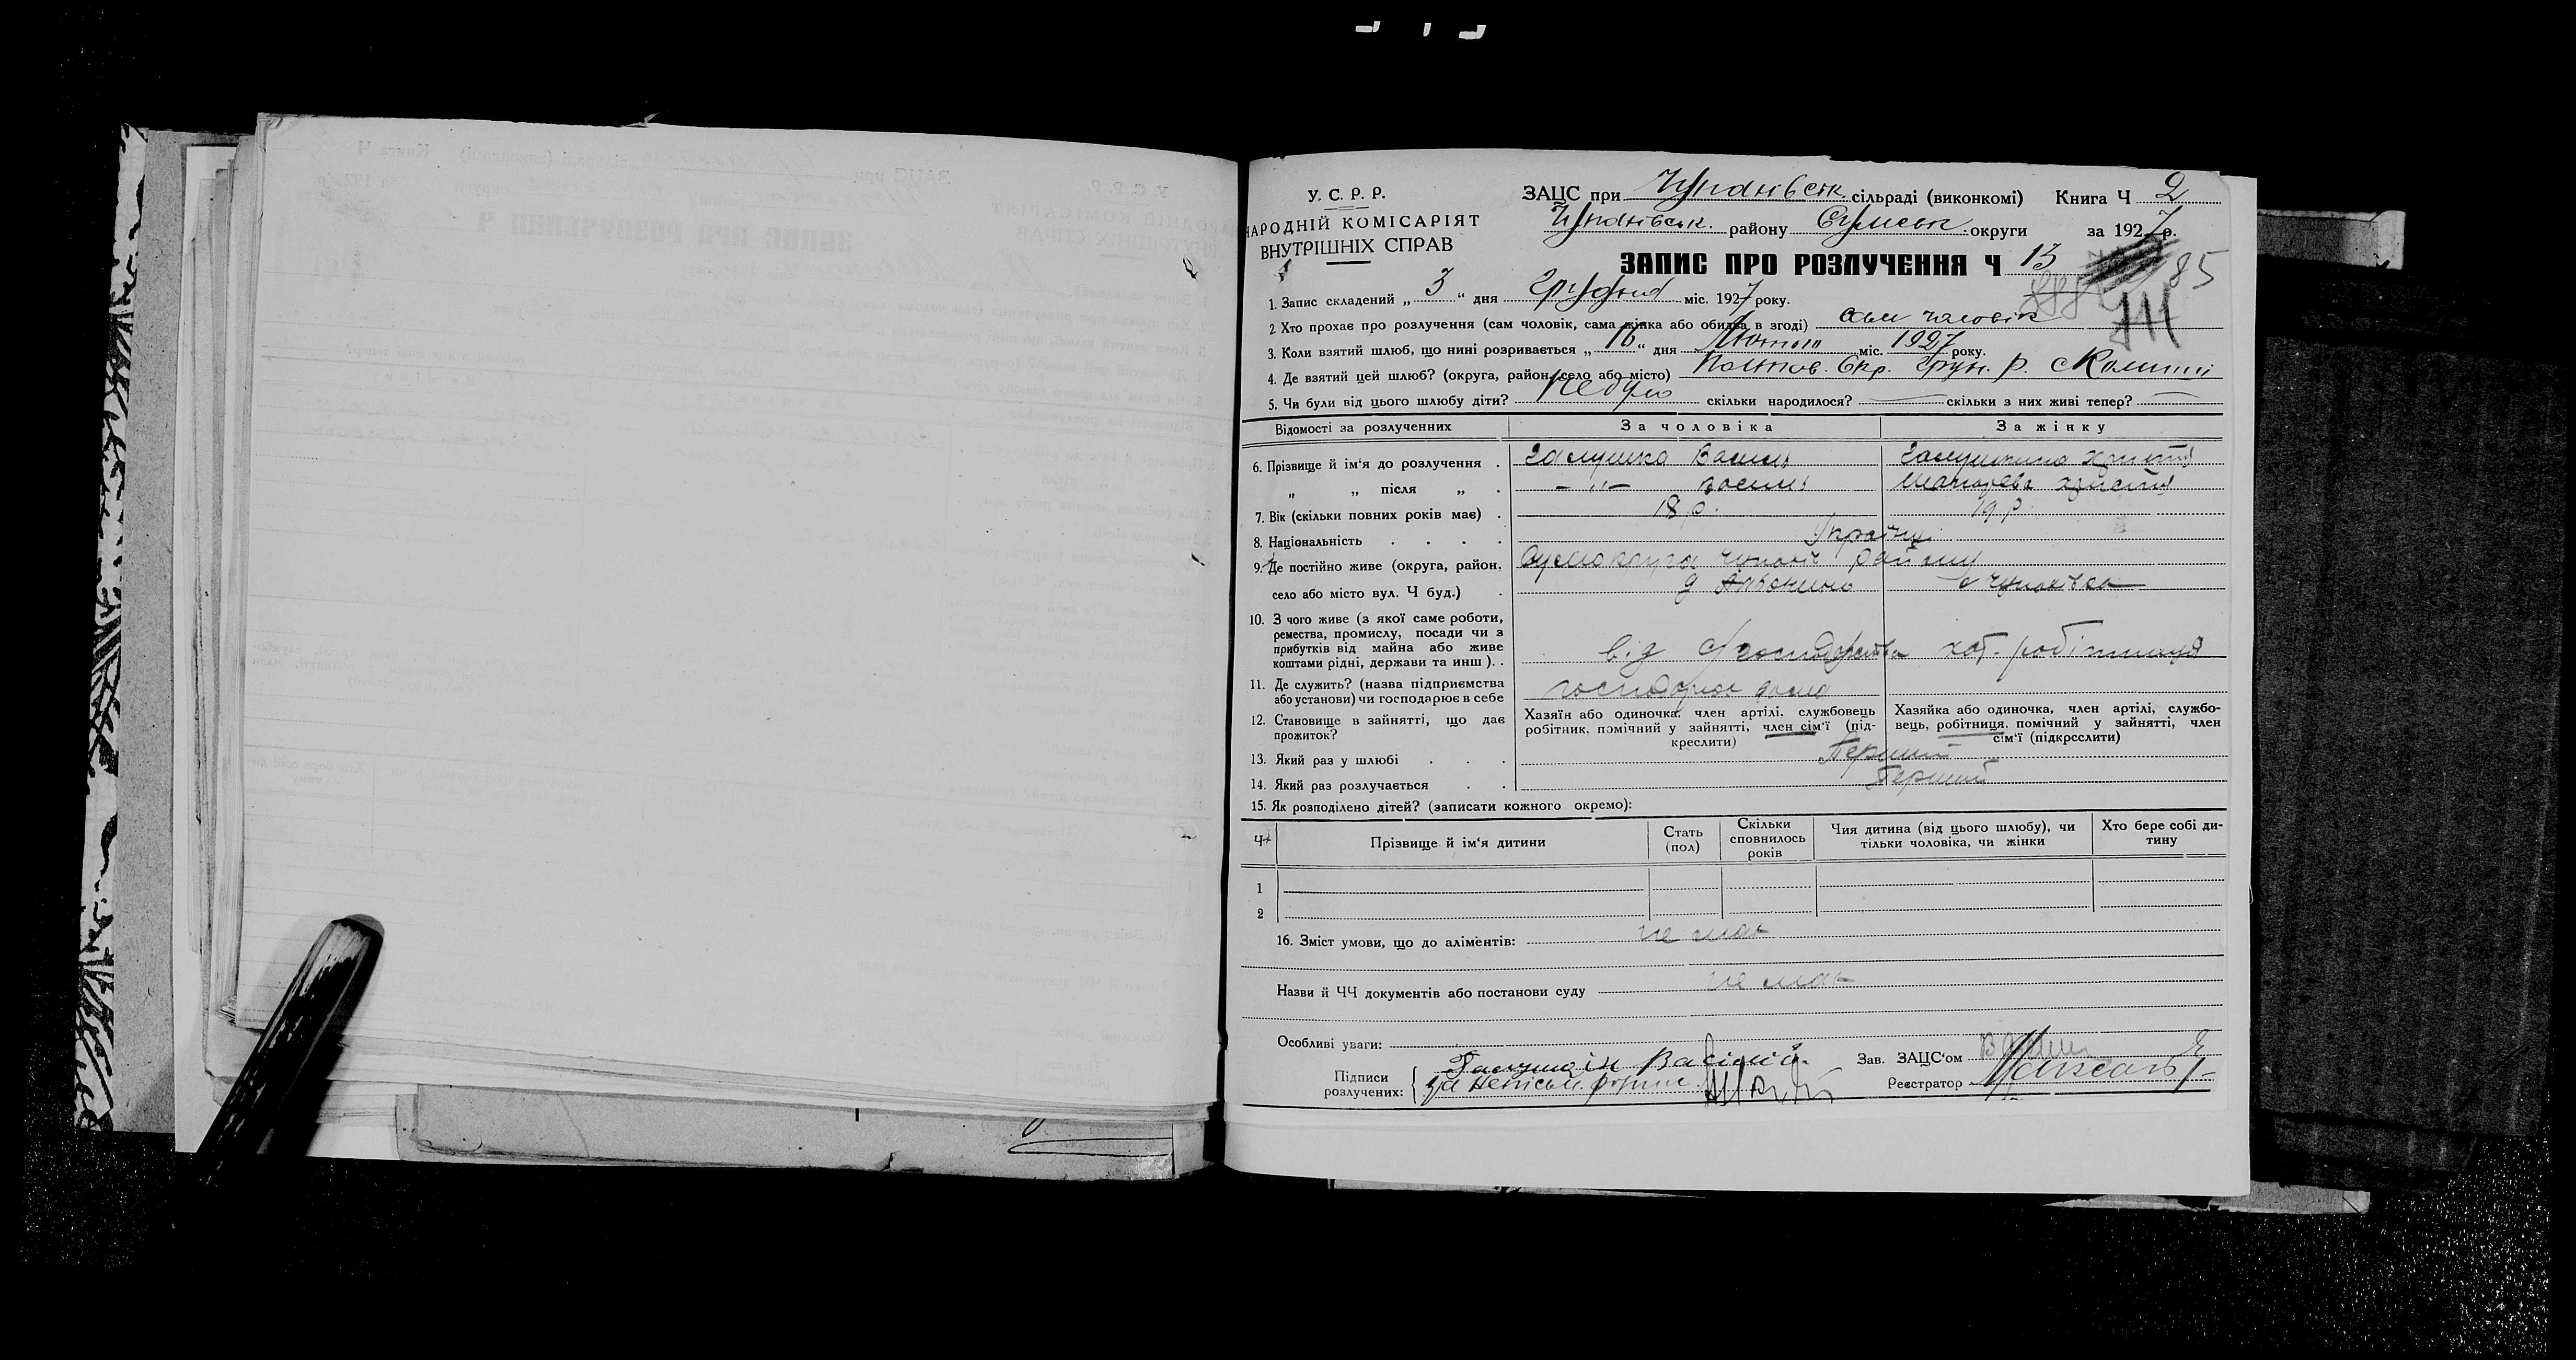 У. С. Р. Р.
НАРОДНІЙ КОМІСАРІЯТ
ВНУТРІШНІХ СПРАВ
ЗАЦС при Чупахівськ. сільраді (виконкомі) Книга Ч 2
Чупахівськ. району Сумськ. округи за 1927 р.
ЗАПИС ПРО РОЗЛУЧЕННЯ Ч 13
85
1. Запис складений „ 3 “ дня Грудня міс. 1927 року.
2. Хто прохає про розлучення (сам чоловік, сама жінка або обидва в згоді) сам чаловік
3. Коли взятий шлюб, що нині розривається „ 16 “ дня Лютого міс. 1927 року.
4. Де взятий цей шлюб? (округа, район, село або місто) Полтов. Окр. Грун. р.
5. Чи були від цього шлюбу діти? Небуло скільки народилося? — скільки з них живі тепер? —
Відомості за розлученних За чоловіка За жінку
6. Прізвище й ім‘я до розлучення . Галушка Василь Галушкина Христя
„ „ після „ . — „ — Василь Христя
7. Вік (скільки повних років має) . 18 р. 19 р.
8. Національність . . . . Україн.
9. Де постійно живе (округа, район, Сумокруга Чупахів району
село або місто вул. Ч буд.) .
10. З чого живе (з якої саме роботи,
ремества, промислу, посади чи з
прибутків від майна або живе
коштами рідні, держави та инш ). . від с/господарства хат. робітниця
11. Де служить? (назва підприємства
або установи) чи господарює в себе господарює дома
12. Становище в зайнятті, що дає
прожиток?
Хазяїн або одиночка, член артілі, службовець
робітник, помічний у зайнятті, член сім‘ї (під-
креслити)
Хазяйка або одиночка, член артілі, службо-
вець, робітниця, помічний у зайнятті, член
сім‘ї (підкрсслити)
13. Який раз у шлюбі . . . Перший
14. Який раз розлучається . . Перший
15. Як розподілено дітей? (записати кожного окремо):
Ч Прізвище й ім‘я дитини Стать (пол) Скільки сповнилось років Чия дитина (від цього шлюбу), чи тільки чоловіка, чи жінки Хто бере собі дитину
1
2
16. Зміст умови, що до аліментів: не має
Назви й ЧЧ документів або постанови суду не має
Особливі уваги:
Підписи
розлучених: Василій
за неписьм.
Зав. ЗАЦС‘ом
Реєстратор